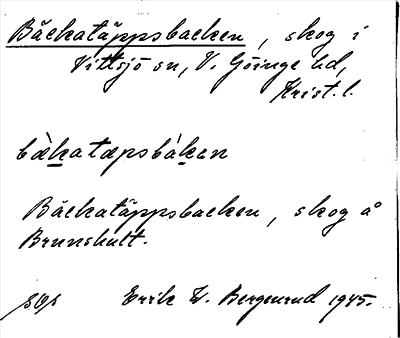 Bäckatäppsbacken, skog i
Vittsjö sn, V. Göinge hd,
Krist. l.
bæ̀katæpsbàkən
Bäckatäppsbacken, skog å
Brunshult.
Erik W. Bergenrud 1945.